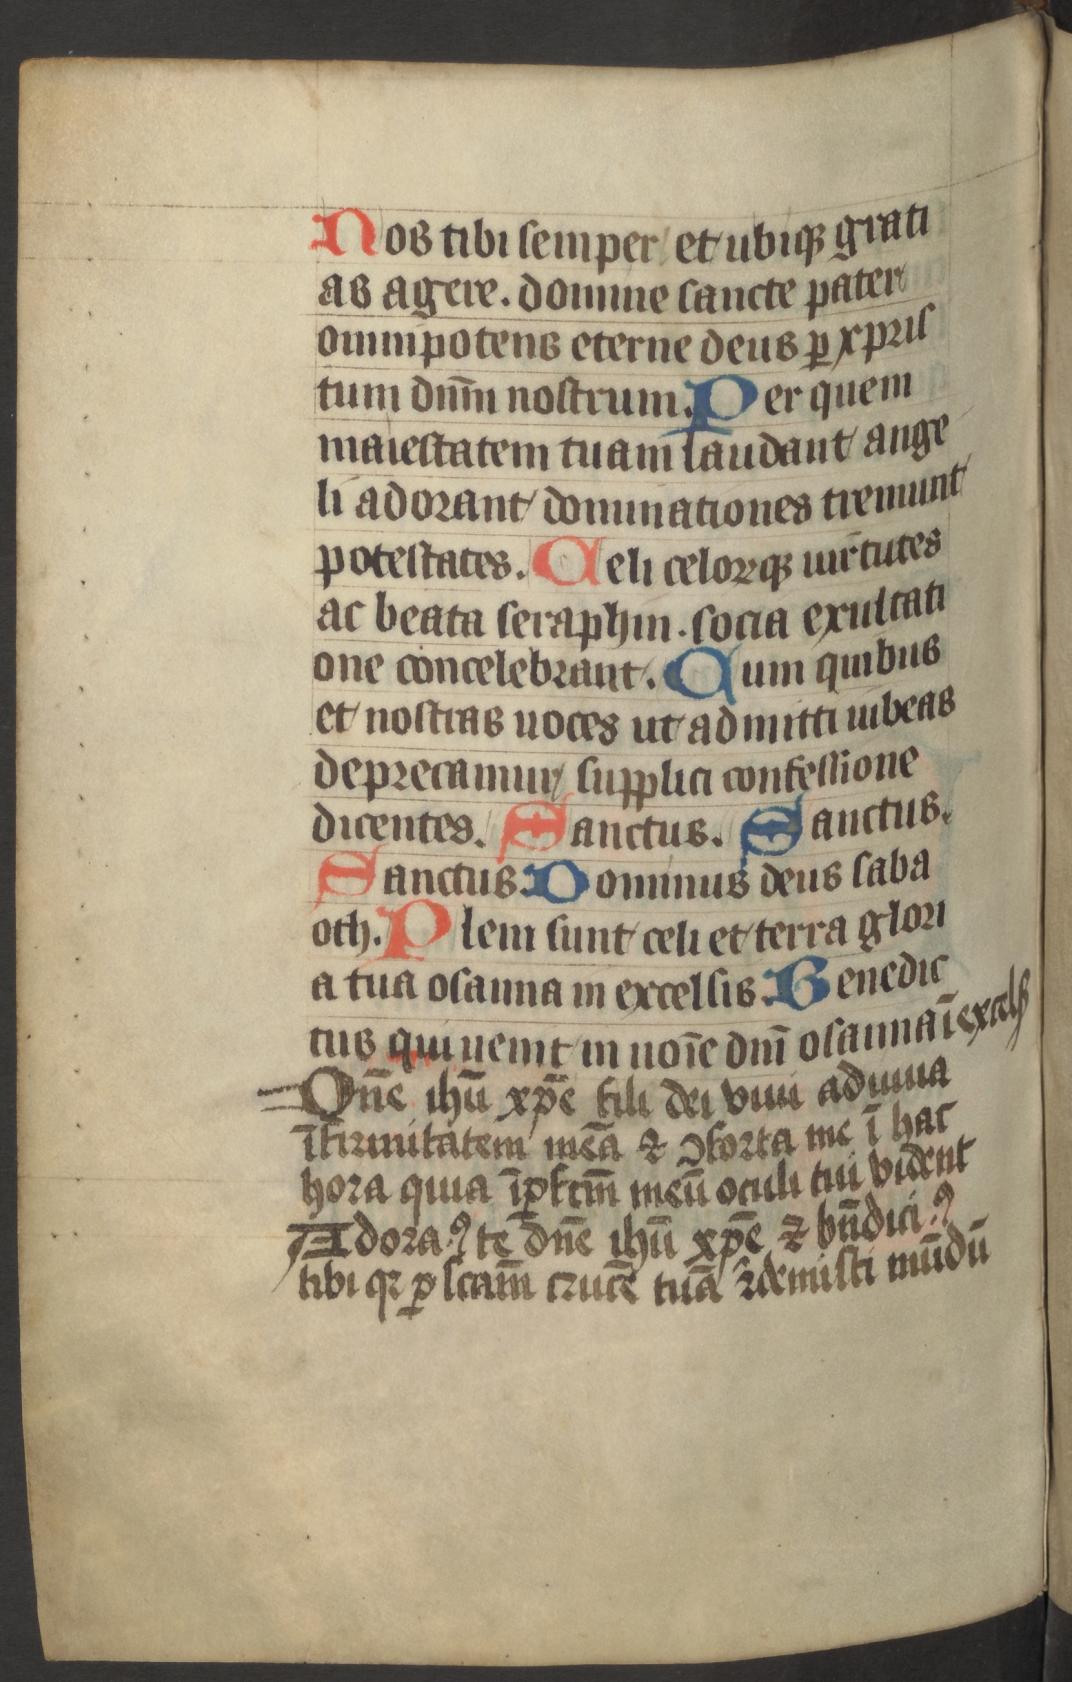 Nos tibi semper et ubiqꝫ grati
as agere. domine sancte pater
omnipotens eterne deus ꝑ xpris
tum dn̄m nostrum. Per quem
maiestatem tuam laudant ange
li adorant dominationes tremunt
potestates. Celi celorqꝫ uirtutes
ac beata seraphin. socia exultati
one concelebrant. Cum quibus
et nostras uoces ut admitti iubeas
deprecamur supplici confessione
dicentes. Sanctus. Sanctus.
Sanctus. Dominus deus saba
oth. Pleni sunt celi et terra glori
a tua osanna in excelsis. Benedic
tus qui uenit in noīe dnī osanna ī excelsꝭ
Dn̄e ihū xp̄e fili dei viui adiuua
īfirmitatem meā ⁊ ꝯforta me ī hac
hora quia īꝑfcm̄ meū oculi tui vident
Adoraꝰ te dn̄e ihū xp̄e ⁊ bn̄diciꝰ
tibi qꝛ ꝑ scam̄ crucē tuā redemisti mūdū